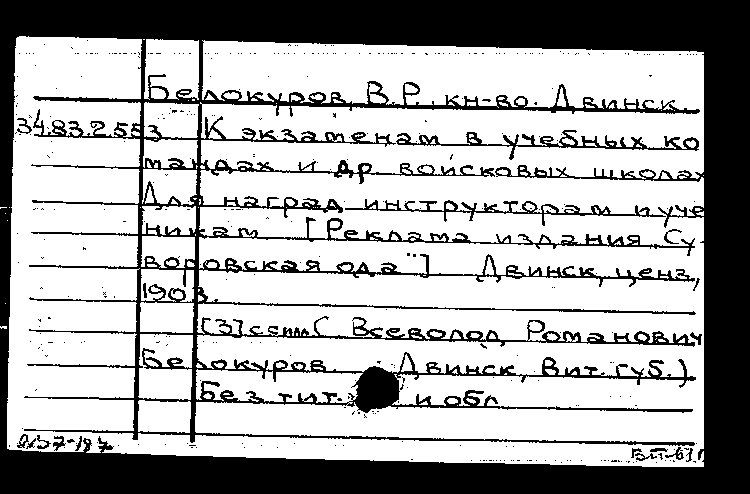 Белокуров, В.Р., кн-во. Двинск.
34.83.2.553 К экзаменам в учебных ко
мандах и др войсковых школах
Для наград инструкторам и уче
никам [Реклама издания „Су-
воровская ода"] Двинск, ценз,
1903.
[3]с еилл ( Всеволод Романович
Белокуров. Двинск, Вит. губ.)
Без тит. и обл